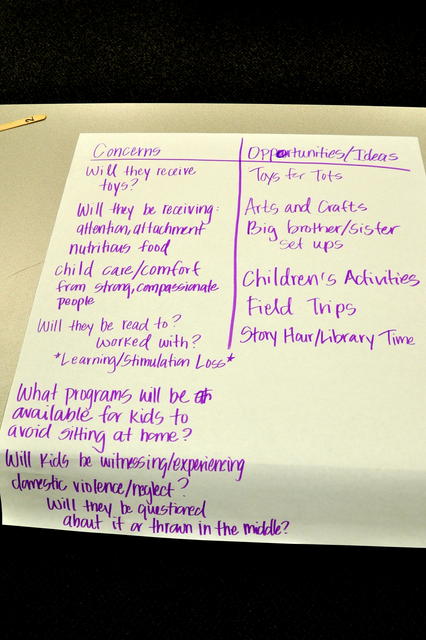 Concerns
Will they receive
toys?
Will they be receiving:
attention, attachment
nutritious food
child care/comfort
from strong, compassionate
people
Will they be read to?
worked with?
*Learning/Stimulation Loss*
What programs will be
available for kids to
avoid sitting at home?
Will Kids be witnessing/experiencing
domestic violence/neglect?
Will they be questioned
about it or thrown in the middle?
Opportunities/Ideas
Toys for Tots
Arts and Crafts
Big brother/sister
set ups
Children's Activities
Field Trips
Story Hour/Library Time
2